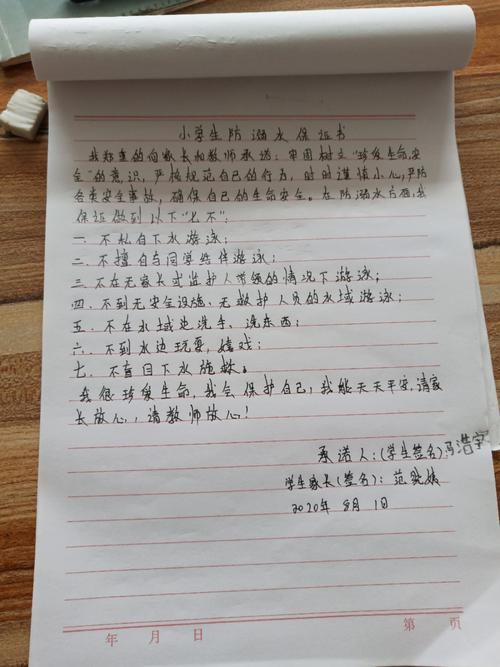 小学生防溺水保证书
我郑重的向家长和教师承诺：牢固树立“珍爱生命，安
全”的意识，严格规范自己的行为，时时谨慎小心，严防
各类安全事故，确保自己的生命安全。在防溺水方面，我
保证做到以下“七不”：
一. 不私自下水游泳；
二. 不擅自与同学结伴游泳；
三. 不在无家长或监护人带领的情况下游泳；
四. 不到无安全设施、无救护人员的水域游泳；
五. 不在水域边洗手、洗东西；
六. 不到水边玩耍，嬉戏；
七. 不盲目下水施救。
我很珍爱生命，我会保护自己；我能天天平安，请家
长放心，请教师放心！
承诺人：(学生签名)冯浩宇
学生家长(签名)：范
2020年 8月 1日
年 月 日 第 页